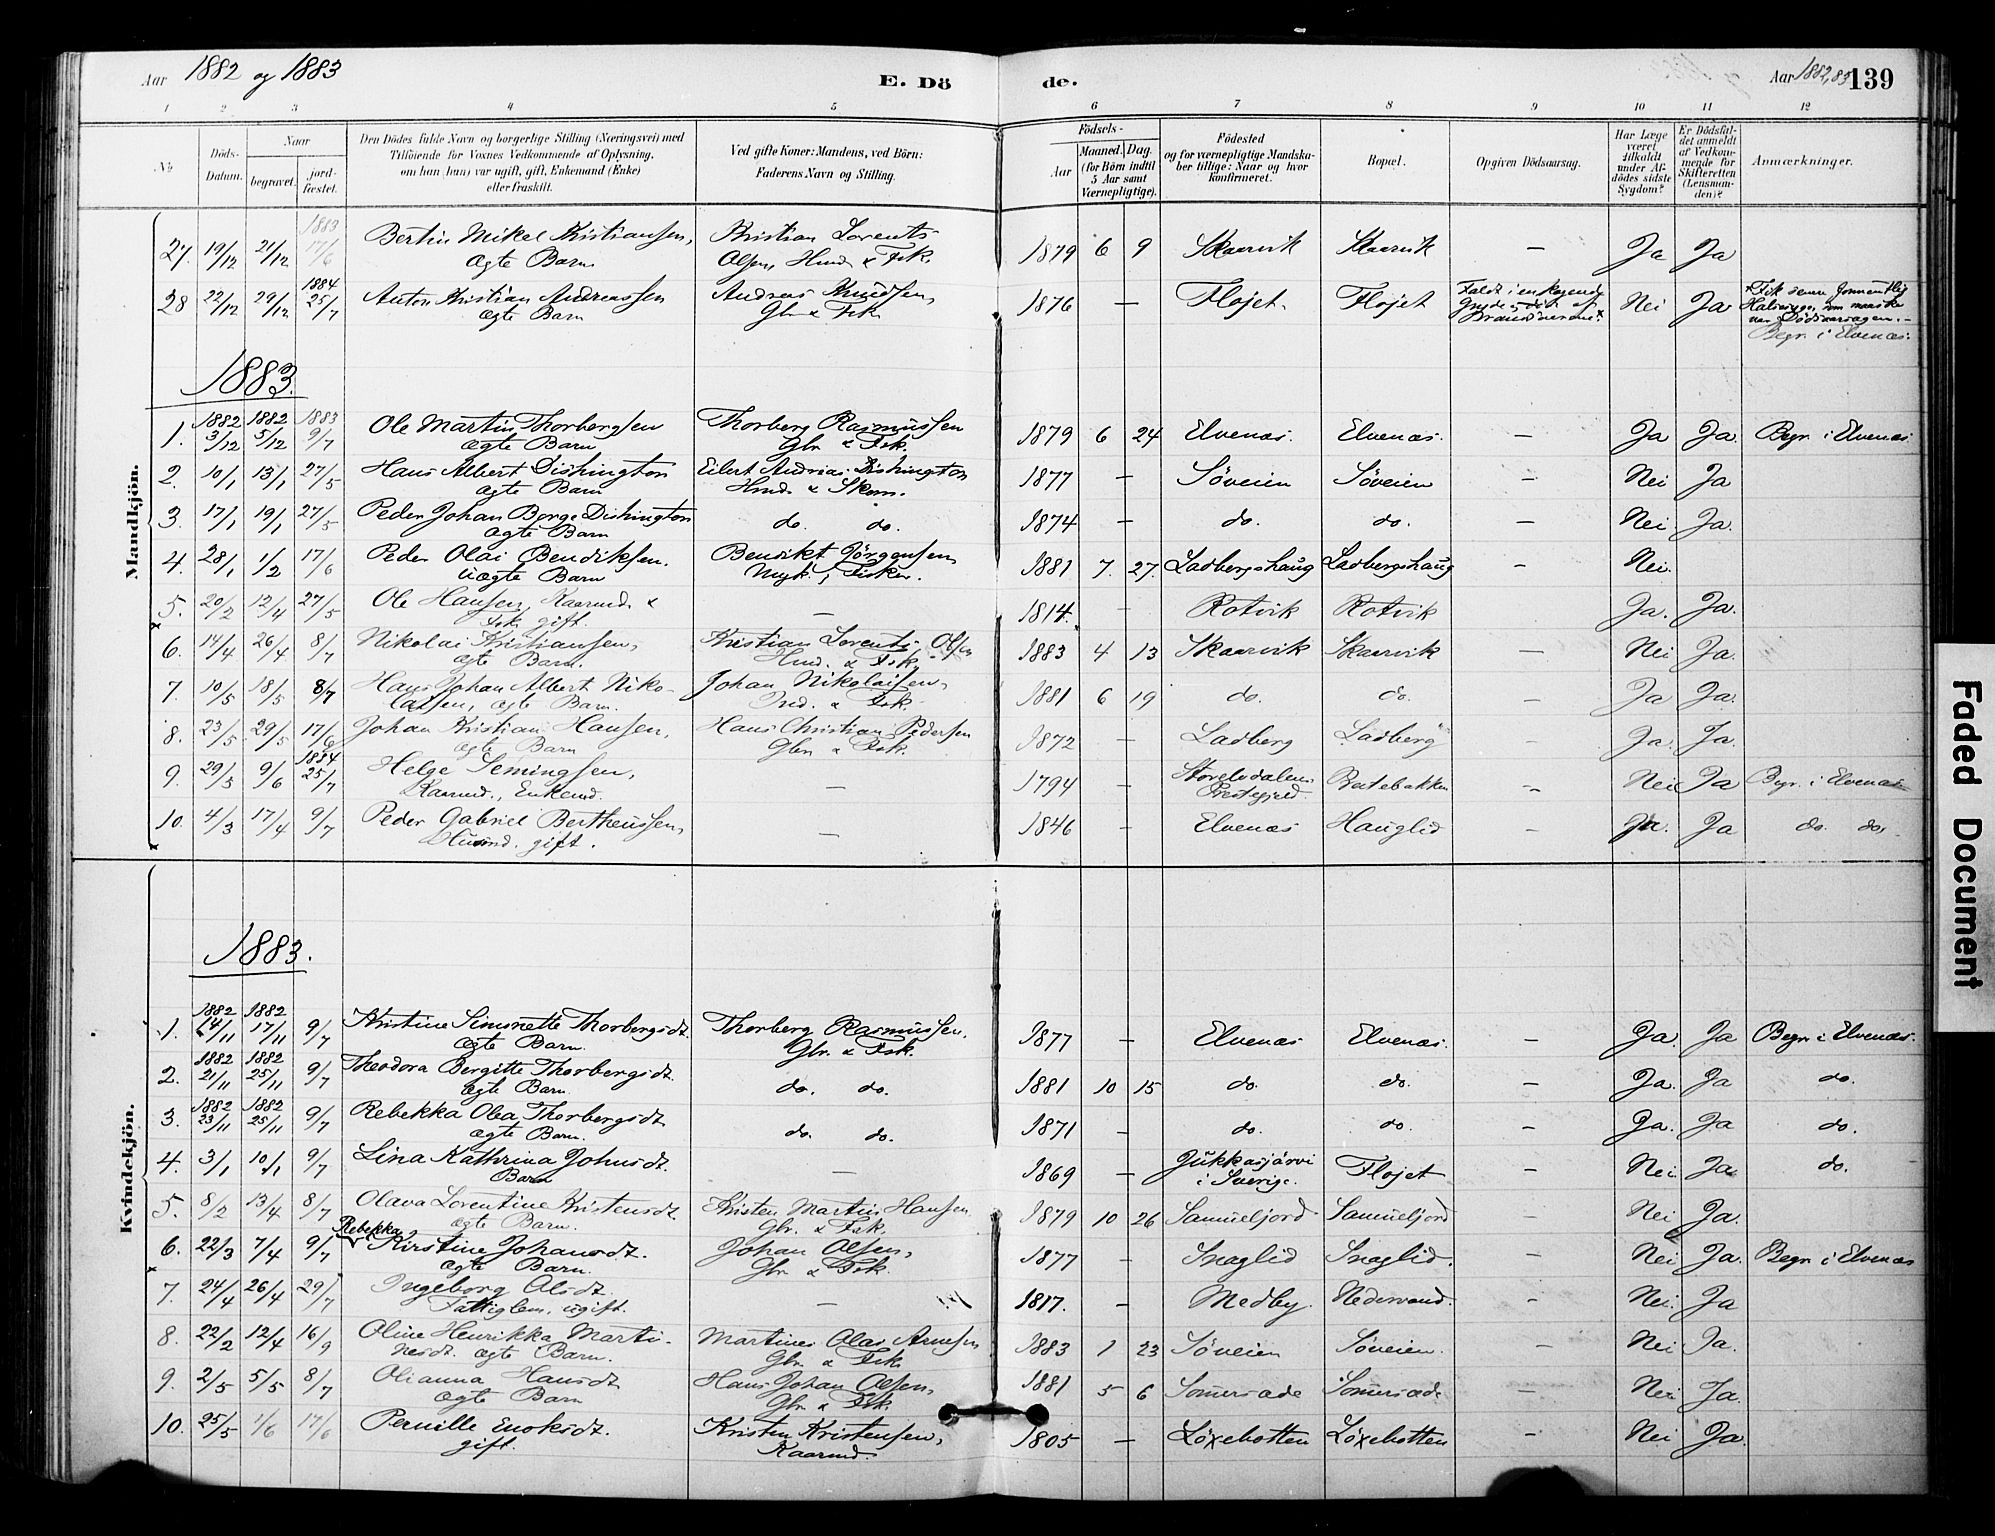 Aar 1882 og 1883
E. Dö de.
Aar 1882,83 139
1 2 3 4 5 6 7 8 9 10 11 12
No
Döds-Datum.
Naar begravet. jord-fæstet.
Den Dödes fulde Navn og borgerlige Stilling (Næringsvei) med
Tilföiende for Voxnes Vedkommende af Oplysning,
om han (hun) var ugift, gift, Enkemand (Enke)
eller fraskilt.
Ved gifte Koner: Mandens, ved Börn:
Faderens Navn og Stilling.
Födsels-
Aar Maaned. Dag.
(for Börn indtil
5 Aar samt
Værnepligtige).
Födested
og for værnepligtige Mandska-
ber tillige: Naar og hvor
konfirmeret.
Bopæl.
Opgiven Dödsaarsag.
Har Læge
været
tilkaldt
under Af-
dödes sidste
Sygdom?
Er Dödsfal-
det anmeldt
af Vedkom-
mende for
Skifteretten
(Lensman-
den)?
Anmærkninger.
Mandkjön.
1883
27. 19/12 21/12 17/6 Bertin Mikel Kristiansen, Kristian Lorents 1879 6 9 Skaarvik Skaarvik — Ja Ja
ægte Barn Olsen, Hmd. & Fsk.
1884
28 22/12 29/12 25/7 Anton Kristian Andreassen Andreas Knudsen, 1876 — Flöjet. Flöjet Faldt i en kogende Nei Ja
ægte Barn Gbr & Fsk.
Begr. i Elvenæs.
1883.
1882 1882 1883
1. 3/12 5/12 9/7 Ole Martin Thorbergsen Thorberg Rasmussen 1879 6 24 Elvenæs. Elvenæs. — Ja Ja. Begr. i Elvenæs.
ægte Barn Gbr. & Fsk.
2. 10/1 13/1 27/5 Hans Albert Dishington Eilert Andrias Dishington 1877 — Söveien Söveien — Nei Ja
ægte Barn Hmd. & Skom.
3. 17/1 19/1 27/5 Peder Johan Borge Dishington do. do. 1874 — do. do. — Nei Ja.
ægte Barn
4. 28/1 1/2 17/6 Peder Olai Bendiksen. Bendikt Jörgensen 1881 7. 27. Ladbergshaug Ladbergshaug — Nei.
uægte Barn Ungk., Fisker.
5. 20/2 12/4 27/5 Ole Hansen, Kaarmd. & — 1814. — Rotvik Rotvik — Ja. Ja.
Fsk. gift.
6. 14/4 26/4 8/7 Nikolai Kristiansen, Kristian Lorents Olsen 1883 4 13 Skaarvik Skaarvik — Nei Ja.
ægte Barn. Hmd. & Fsk.
7. 10/5 18/5 8/7 Hans Johan Albert Niko- Johan Nikolaisen, 1881 6 19 do. do. — Ja Ja.
laisen, ægte Barn. Ind. & Fsk.
8. 23/5 29/5 17/6 Johan Kristian Hansen, Hans Christian Pedersen 1872 — Ladberg Ladberg — Ja. Ja.
ægte Barn Gbr. & Fsk.
1884
9. 29/5 9/6 25/7 Helge Semingsen, — 1794 — Storelvdalens Bratebakken — Nei Ja Begr. i Elvenæs
Kaarmd., Enkemd. Prestegjeld.
10. 4/3 17/4 9/7 Peder Gabriel Bertheussen, — 1846 — Elvenæs Hauglid — Ja. Ja do. do.
Husmd. gift.
Kvindekjön.
1883.
1882 1882
1. 14/11 17/11 9/7 Kristine Simonette Thorbergsdt. Thorberg Rasmussen. 1877 — Elvenæs Elvenæs. — Ja. Ja Begr. i Elvenæs.
ægte Barn. Gbr. & Fsk.
1882 1882
2. 21/11 25/11 9/7 Theodora Bergitte Thorbergsdt. do. do. 1881 10 15 do. do. — Ja. Ja do.
ægte Barn.
1882 1882
3. 23/11 25/11 9/7 Rebekka Olea Thorbergsdt. do. do. 1871 — do. do. — Ja. Ja do.
ægte Barn.
4. 3/1 10/1 9/7 Lina Kathrina Johnsdt. — 1869 — Jukkasjärvi Flöjet — Nei Ja do.
Barn i Sverige.
5. 8/2 13/4 8/7 Olava Lorentine Kristensdt. Kristen Martin Hansen 1879 10 26 Samueljord Samueljord — Nei Ja.
ægte Barn. Gbr. & Fsk.
Rebekka
6. 22/3 7/4 9/7 Kirstine Johansdt. Johan Olsen, 1877 — Snaglid Snaglid. — Nei Ja. Begr. i Elvenæs
ægte Barn. Gbr. & Fsk.
7. 24/4 26/4 29/7 Ingeborg Olsdt. — 1817. — Medby. Nedervand. — Nei. Ja
Fattiglem, ugift.
8. 22/2 12/4 16/9 Oline Henrikka Marti- Martines Olai Arnesen 1883 1 23 Söveien Söveien. — Nei Ja.
nesdt. ægte Barn. Gbr. & Fsk.
9. 2/5 5/5 8/7 Olianna Hansdt. Hans Johan Olsen, 1881 5 6 Somersæde Somersæde — Nei Ja.
ægte Barn Gbr. & Fsk.
10. 25/5 1/6 17/6 Pernille Enoksdt. Kristen Kristensen, 1805 — Löxebotten Löxebotten — Nei Ja.
gift. Kaarmd.
Faded Document